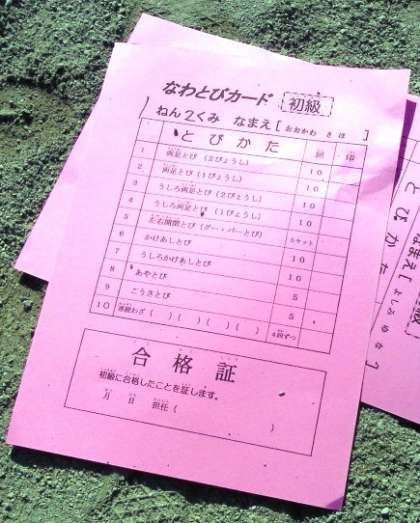 なわとびカード 初級
1ねん2くみ なまえ[おおかわ さほ]
とびかた 回 印
1 両足とび(2びょうし) 10
2 両足とび(1びょうし) 10
3 うしろ両足とび(2びょうし) 10
4 うしろ両足とび(1びょうし) 10
5 左右開閉とび(グー・パーとび) 5セット
6 かけあしとび 10
7 うしろかけあしとび 10
8 あやとび 5
9 こうさとび 5
10 連続わざ( )( )( )( ) 4回ずつ
合格証
初級に合格したことを証します。
月 日 担任( )
とびかた
なまえ[よしぶ
初級